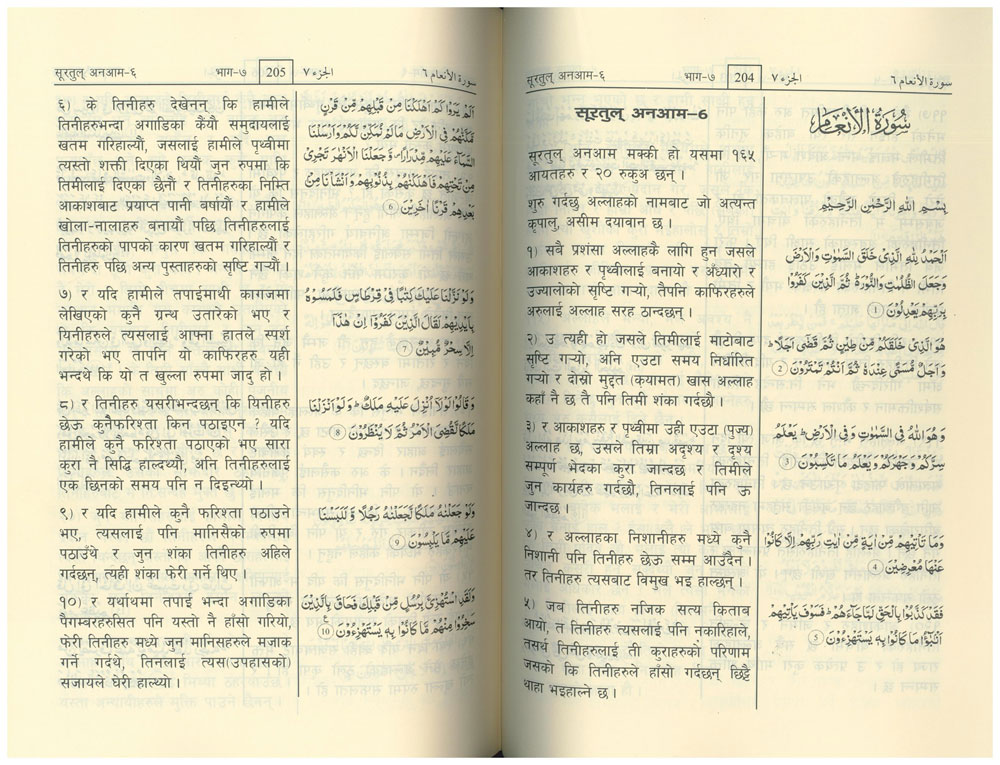 सूरतुल् अनआम-६ भाग-७ 204 الجزء ٧ سورة الأنعام ٦
सूरतुल् अनआम-6
सूरतुल् अनआम मक्की हो यसमा १६५
आयतहरु र २० रुकुअ छन् ।
शुरु गर्दछु अल्लाहको नामबाट जो अत्यन्त
कृपालु, असीम दयावान छ ।
१) सबै प्रशंसा अल्लाहकै लागि हुन जसले
आकाशहरु र पृथ्वीलाई बनायो र अँध्यारो र
उज्यालोको सृष्टि गऱ्यो, तैपनि काफिरहरुले
अरुलाई अल्लाह सरह ठान्दछन् ।
२) उ त्यही हो जसले तिमीलाई माटोबाट
सृष्टि गऱ्यो, अनि एउटा समय निर्धारित
गऱ्यो र दोस्रो मुद्दत (क़यामत) खास अल्लाह
कहाँ नै छ तै पनि तिमी शंका गर्दछौ ।
३) र आकाशहरु र पृथ्वीमा उही एउटा (पुज्य)
अल्लाह छ, उसले तिम्रा अदृश्य र दृश्य
सम्पूर्ण भेदका कुरा जान्दछ र तिमीले
जुन कार्यहरु गर्दछौ, तिनलाई पनि ऊ
जान्दछ ।
४) र अल्लाहका निशानीहरु मध्ये कुनै
निशानी पनि तिनीहरु छेऊ सम्म आउँदैन ।
तर तिनीहरु त्यसबाट विमुख भइ हाल्छन् ।
५) जब तिनीहरु नजिक सत्य किताब
आयो, त तिनीहरु त्यसलाई पनि नकारिहाले,
तसर्थ तिनीहरुलाई ती कुराहरुको परिणाम
जसको कि तिनीहरुले हाँसो गर्दछन् छिट्टै
थाहा भइहाल्ने छ ।
سُورَةُ الأَنْعَامِ
بِسْمِ اللهِ الرَّحْمٰنِ الرَّحِيْمِ
اَلْحَمْدُ لِلّٰهِ الَّذِيْ خَلَقَ السَّمٰوٰتِ وَالْاَرْضَ
وَجَعَلَ الظُّلُمٰتِ وَالنُّوْرَ ۬ ثُمَّ الَّذِيْنَ كَفَرُوْا
بِرَبِّهِمْ يَعْدِلُوْنَ 1
هُوَ الَّذِيْ خَلَقَكُمْ مِّنْ طِيْنٍ ثُمَّ قَضٰٓى اَجَلًا ؕ
وَاَجَلٌ مُّسَمًّى عِنْدَهٗ ثُمَّ اَنْتُمْ تَمْتَرُوْنَ 2
وَهُوَ اللّٰهُ فِي السَّمٰوٰتِ وَفِي الْاَرْضِ ؕ يَعْلَمُ
سِرَّكُمْ وَجَهْرَكُمْ وَيَعْلَمُ مَا تَكْسِبُوْنَ 3
وَمَا تَاْتِيْهِمْ مِّنْ اٰيَةٍ مِّنْ اٰيٰتِ رَبِّهِمْ اِلَّا كَانُوْا
عَنْهَا مُعْرِضِيْنَ 4
فَقَدْ كَذَّبُوْا بِالْحَقِّ لَمَّا جَآءَهُمْ ؕ فَسَوْفَ يَاْتِيْهِمْ
اَنْۢبٰٓؤُا مَا كَانُوْا بِهٖ يَسْتَهْزِءُوْنَ 5
सूरतुल् अनआम-६ भाग-७ 205 الجزء ٧ سورة الأنعام ٦
६) के तिनीहरु देखेनन् कि हामीले
तिनीहरुभन्दा अगाडिका कैंयौ समुदायलाई
खतम गरिहाल्यौं, जसलाई हामीले पृथ्वीमा
त्यस्तो शक्ती दिएका थियौं जुन रुपमा कि
तिमीलाई दिएका छैनौं र तिनीहरुका निम्ति
आकाशबाट प्रयाप्त पानी बर्षायौं र हामीले
खोला-नालाहरु बनायौं पछि तिनीहरुलाई
तिनीहरुको पापको कारण खतम गरिहाल्यौं र
तिनीहरु पछि अन्य पुस्ताहरुको सृष्टि गऱ्यौं ।
७) र यदि हामीले तपाईमाथी कागजमा
लेखिएको कुनै ग्रन्थ उतारेको भए र
यिनीहरुले त्यसलाई आफ्ना हातले स्पर्श
गरेको भए तापनि यो काफिरहरु यही
भन्दथे कि यो त खुल्ला रुपमा जादु हो ।
८) र तिनीहरु यसरीभन्दछन् कि यिनीहरु
छेऊ कुनैफरिश्ता किन पठाइएन ? यदि
हामीले कुनै फरिश्ता पठाएको भए सारा
कुरा नै सिद्धि हाल्दथ्यौ, अनि तिनीहरुलाई
एक छिनको समय पनि न दिइन्थ्यो ।
९) र यदि हामीले कुनै फरिश्ता पठाउने
भए, त्यसलाई पनि मानिसैको रुपमा
पठाउँथे र जुन शंका तिनीहरु अहिले
गर्दछन्, त्यही शंका फेरी गर्ने थिए ।
१०) र यर्थाथमा तपाई भन्दा अगाडिका
पैगम्बरहरुसित पनि यस्तो नै हाँसो गरियो,
फेरी तिनीहरु मध्ये जुन मानिसहरुले मजाक
गर्ने गर्दथे, तिनलाई त्यस(उपहासको)
सजायले घेरी हाल्थ्यो ।
اَلَمْ يَرَوْا كَمْ اَهْلَكْنَا مِنْ قَبْلِهِمْ مِّنْ قَرْنٍ
مَّكَّنّٰهُمْ فِي الْاَرْضِ مَا لَمْ نُمَكِّنْ لَّكُمْ وَاَرْسَلْنَا
السَّمَآءَ عَلَيْهِمْ مِّدْرَارًا ۪ وَّجَعَلْنَا الْاَنْهٰرَ تَجْرِيْ
مِنْ تَحْتِهِمْ فَاَهْلَكْنٰهُمْ بِذُنُوْبِهِمْ وَاَنْشَاْنَا مِنْۢ
بَعْدِهِمْ قَرْنًا اٰخَرِيْنَ 6
وَلَوْ نَزَّلْنَا عَلَيْكَ كِتٰبًا فِيْ قِرْطَاسٍ فَلَمَسُوْهُ
بِاَيْدِيْهِمْ لَقَالَ الَّذِيْنَ كَفَرُوْٓا اِنْ هٰذَآ
اِلَّا سِحْرٌ مُّبِيْنٌ 7
وَقَالُوْا لَوْلَآ اُنْزِلَ عَلَيْهِ مَلَكٌ ؕ وَلَوْ اَنْزَلْنَا
مَلَكًا لَّقُضِيَ الْاَمْرُ ثُمَّ لَا يُنْظَرُوْنَ 8
وَلَوْ جَعَلْنٰهُ مَلَكًا لَّجَعَلْنٰهُ رَجُلًا وَّلَلَبَسْنَا
عَلَيْهِمْ مَّا يَلْبِسُوْنَ 9
وَلَقَدِ اسْتُهْزِئَ بِرُسُلٍ مِّنْ قَبْلِكَ فَحَاقَ بِالَّذِيْنَ
سَخِرُوْا مِنْهُمْ مَّا كَانُوْا بِهٖ يَسْتَهْزِءُوْنَ 10